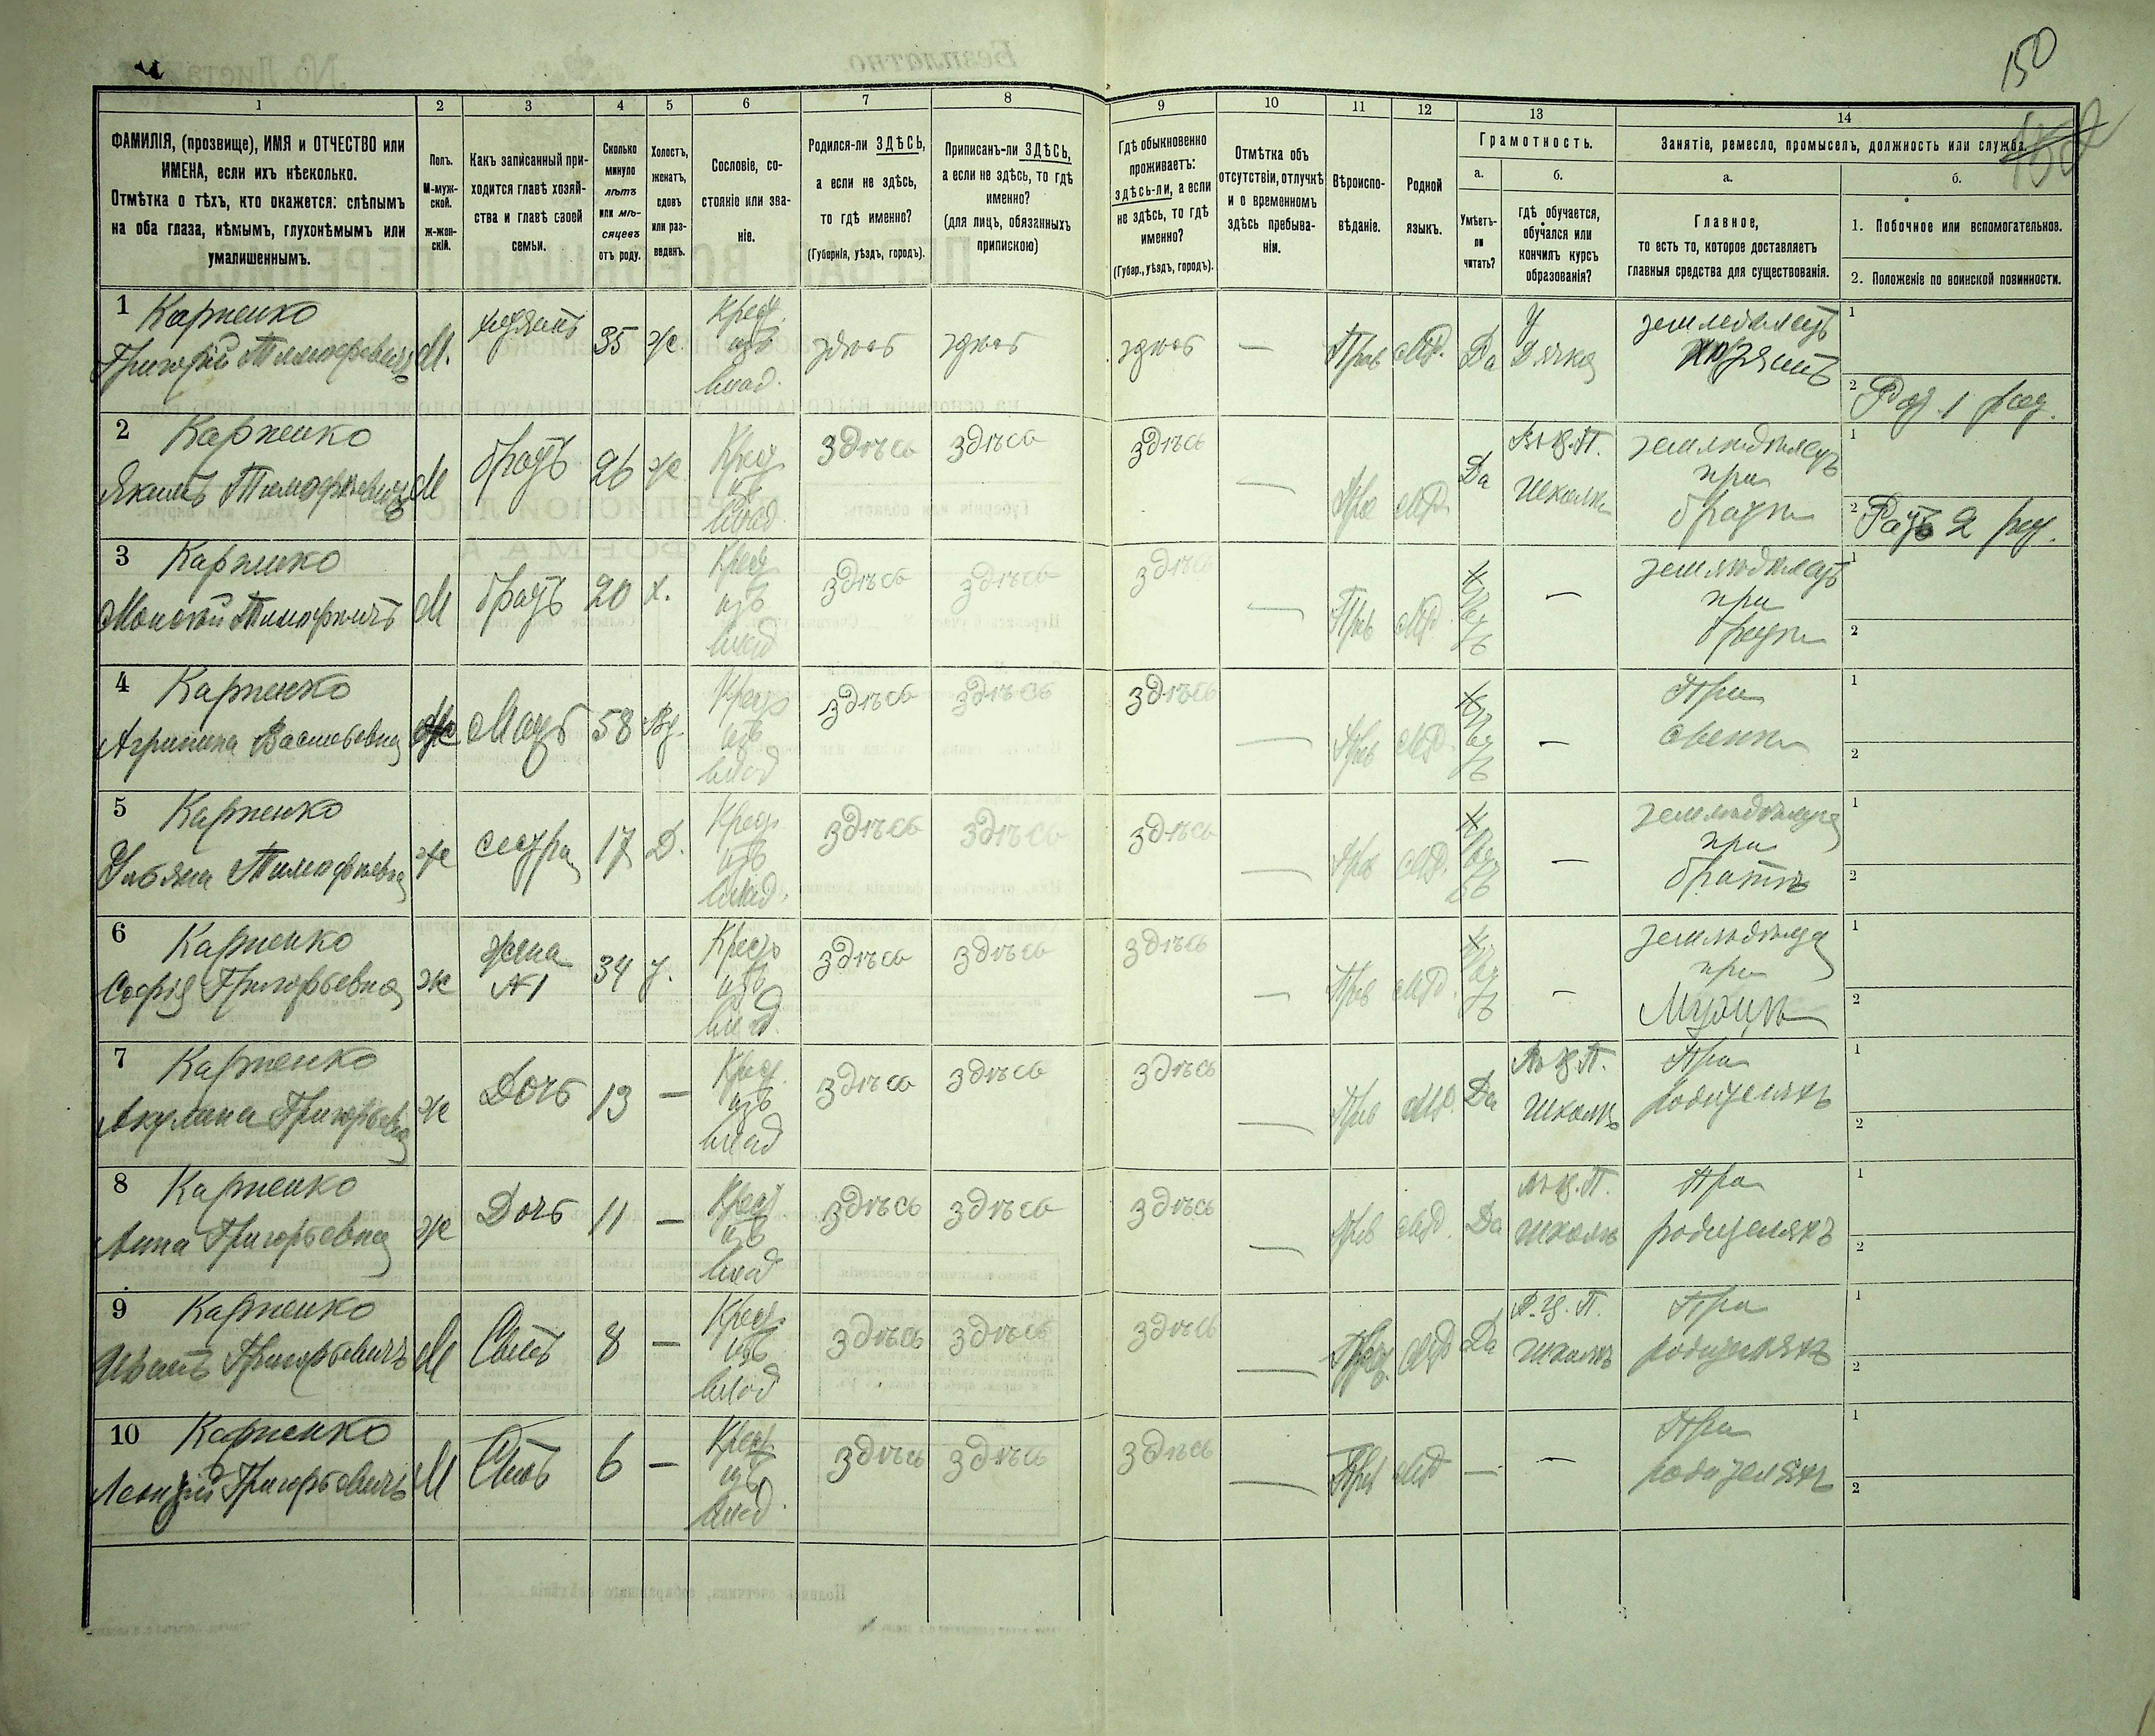 150
1 2 3 4 5 6 7 8 9 10 11 12 13 14
ФАМИЛІЯ, (прозвище), ИМЯ и ОТЧЕСТВО или
ИМЕНА, если ихъ нѣсколько.
Отмѣтка о тѣхъ, кто окажется: слѣпымъ
на оба глаза, нѣмымъ, глухонѣмымъ или
умалишеннымъ.
Полъ.
М-муж-
ской.
ж-жен-
скій.
Какъ записанный при-
ходится главѣ хозяй-
ства и главѣ своей
семьи.
Сколько
минуло
лѣтъ
или мѣ-
сяцевъ
отъ роду.
Холостъ,
женатъ,
вдовъ
или раз-
веденъ.
Сословіе, со-
стояніе или зва-
ніе.
Родился-ли ЗДѢСЬ,
а если не здѣсь,
то гдѣ именно?
(Губернія, уѣздъ, городъ).
Приписанъ-ли ЗДѢСЬ,
а если не здѣсь, то гдѣ
именно?
(для лицъ, обязанныхъ
припискою)
Гдѣ обыкновенно
проживаетъ:
здѣсь-ли, а если
не здѣсь, то гдѣ
именно?
(Губер., уѣздъ, городъ).
Отмѣтка объ
отсутствіи, отлучкѣ
и о временномъ
здѣсь пребыва-
ніи.
Вѣроиспо-
вѣданіе.
Родной
языкъ.
Грамотность.
а.
Умѣетъ-
ли
читать?
б.
гдѣ обучается,
обучался или
кончилъ курсъ
образованія?
Занятіе, ремесло, промыселъ, должность или служба.
а.
Главное,
то есть то, которое доставляетъ
главныя средства для существованія.
б.
1. Побочное или вспомогательное.
2. Положеніе по воинской повинности.
1 Карпенко
Григорій Тимофеевичъ М. хозяинъ 35 ж. Крест. изъ влад. здѣсь здѣсь здѣсь — Прав М.Р. Да У Дячка
земледѣлецъ
хозяинъ
1
2 Рат 1 раз.
2 Карпенко
Якимъ Тимофѣевичъ М братъ 26 ж Крест изъ влад. здѣсь здѣсь здѣсь — Прав М.Р. Да Въ Ц.П. школѣ
земледѣлецъ
при
братѣ
1
2 Ратъ 2 раз.
3 Карпенко
Тимофѣичъ М братъ 20 х. Крест изъ влад здѣсь здѣсь здѣсь — Прав М.Р. —
земледѣлецъ
при
братѣ
1
2
4 Карпенко
Агрипина Васильевна ж Мать 58 Вд. Крест изъ влад здѣсь здѣсь здѣсь — Прав М.Р. —
При
сынѣ
1
2
5 Карпенко
Ульяна Тимофѣевна ж сестра 17 Д. Крест изъ влад. здѣсь здѣсь здѣсь — Прав М.Р. —
при
братѣ
1
2
6 Карпенко
Софія Григорьевна ж жена №1 34 з. Крест изъ влад. здѣсь здѣсь здѣсь — Прав М.Р. —
при
Мужѣ
1
2
7 Карпенко
Акулина Григорьевна ж Дочь 13 — Крест. изъ влад здѣсь здѣсь здѣсь — Прав М.Р. Да Въ Ц.П. школѣ
При
родителяхъ
1
2
8 Карпенко
Анна Григорьевна ж Дочь 11 — Крест изъ влад здѣсь здѣсь здѣсь — Прав М.Р. Да Въ Ц.П. школѣ
При
родителяхъ
1
2
9 Карпенко
Иванъ Григорьевичъ М Сынъ 8 — Крест. изъ влад здѣсь здѣсь здѣсь — Прав М.Р Да В.Ц.П. школѣ
При
родителяхъ
1
2
10 Карпенко
Леонтій Григорьевичъ М Сынъ 6 — Крест изъ влад. здѣсь здѣсь здѣсь — Прав М.Р — —
При
родителяхъ
1
2